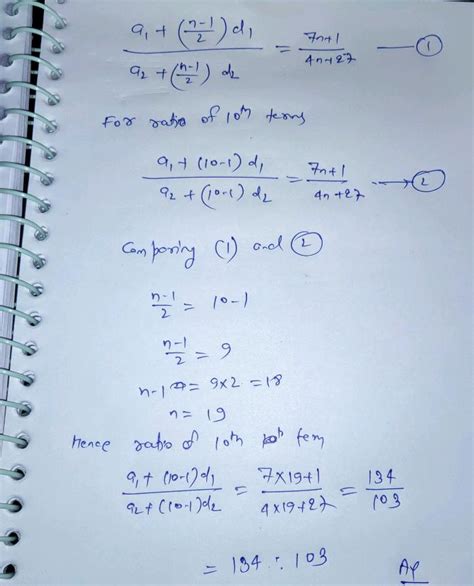 a₁ + (n-1/2) d₁ / a₂ + (n-1/2) d₂ = 7n+1 / 4n+27 — ①
For ratio of 10th terms
a₁ + (10-1) d₁ / a₂ + (10-1) d₂ = 7n+1 / 4n+27 → ②
Comparing (1) and ②
n-1/2 = 10-1
n-1/2 = 9
n-1 = 9×2 = 18
n = 19
Hence ratio of 10th term
a₁ + (10-1)d₁ / a₂ + (10-1)d₂ = 7×19+1 / 4×19+27 = 134/103
= 134 : 103